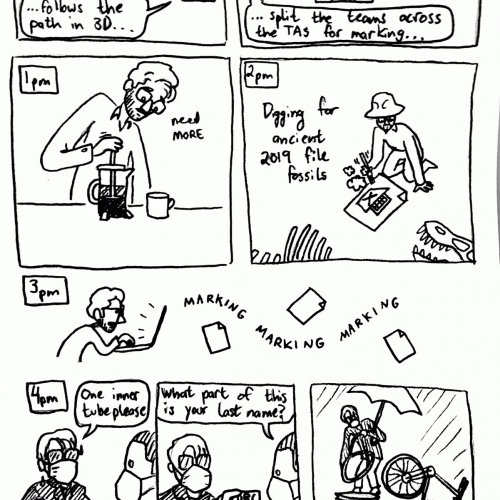 ...follows the
path in 3D...
...split the teams across
the TAs for marking...
1pm
need
MORE
2pm
Digging for
ancient
2019 file
fossils
3pm
MARKING
MARKING
MARKING
4pm
One inner
tube please
What part of this
is your last name?